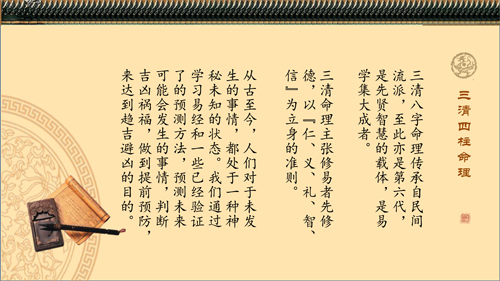 三清四柱命理
三清八字命理传承自民间
流派，至此亦是第六代，
是先贤智慧的载体，是易
学集大成者。
三清命理主张修易者先修
德，以『仁、义、礼、智、
信』为立身的准则。
从古至今，人们对于未发
生的事情，都处于一种神
秘未知的状态。我们通过
学习易经和一些已经验证
了的预测方法，预测未来
可能会发生的事情，判断
吉凶祸福，做到提前预防，
来达到趋吉避凶的目的。